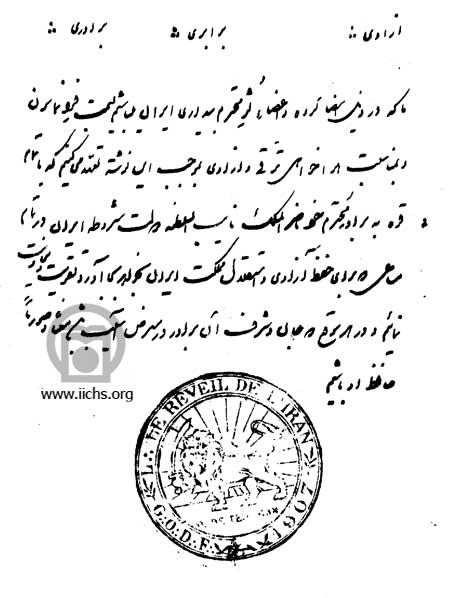 آزادی :: برابری :: برادری ::
ما که در ذیل امضا کرده و اعضاء لژ محترم بیداری ایران میباشیم بسمت فراماسون
و بمناسبت هواخواهی ترقی و آزادی بموجب این نوشته تعهد می کنیم که با تمام
قوه به برادر محترم خود ناصرالملک نایب السلطنه دولت مشروطه ایران در تمام
مساعی که برای حفظ آزادی و استقلال مملکت ایران بجا آورد تقویت و
نمائیم و در هر موقع که جان و شرف آن برادر در معرض آسیب باشد معنا و صورتاً
حافظ او باشیم
www.iichs.org
L∴ LE REVEIL DE L'IRAN
G∴O∴D∴F∴ 1907